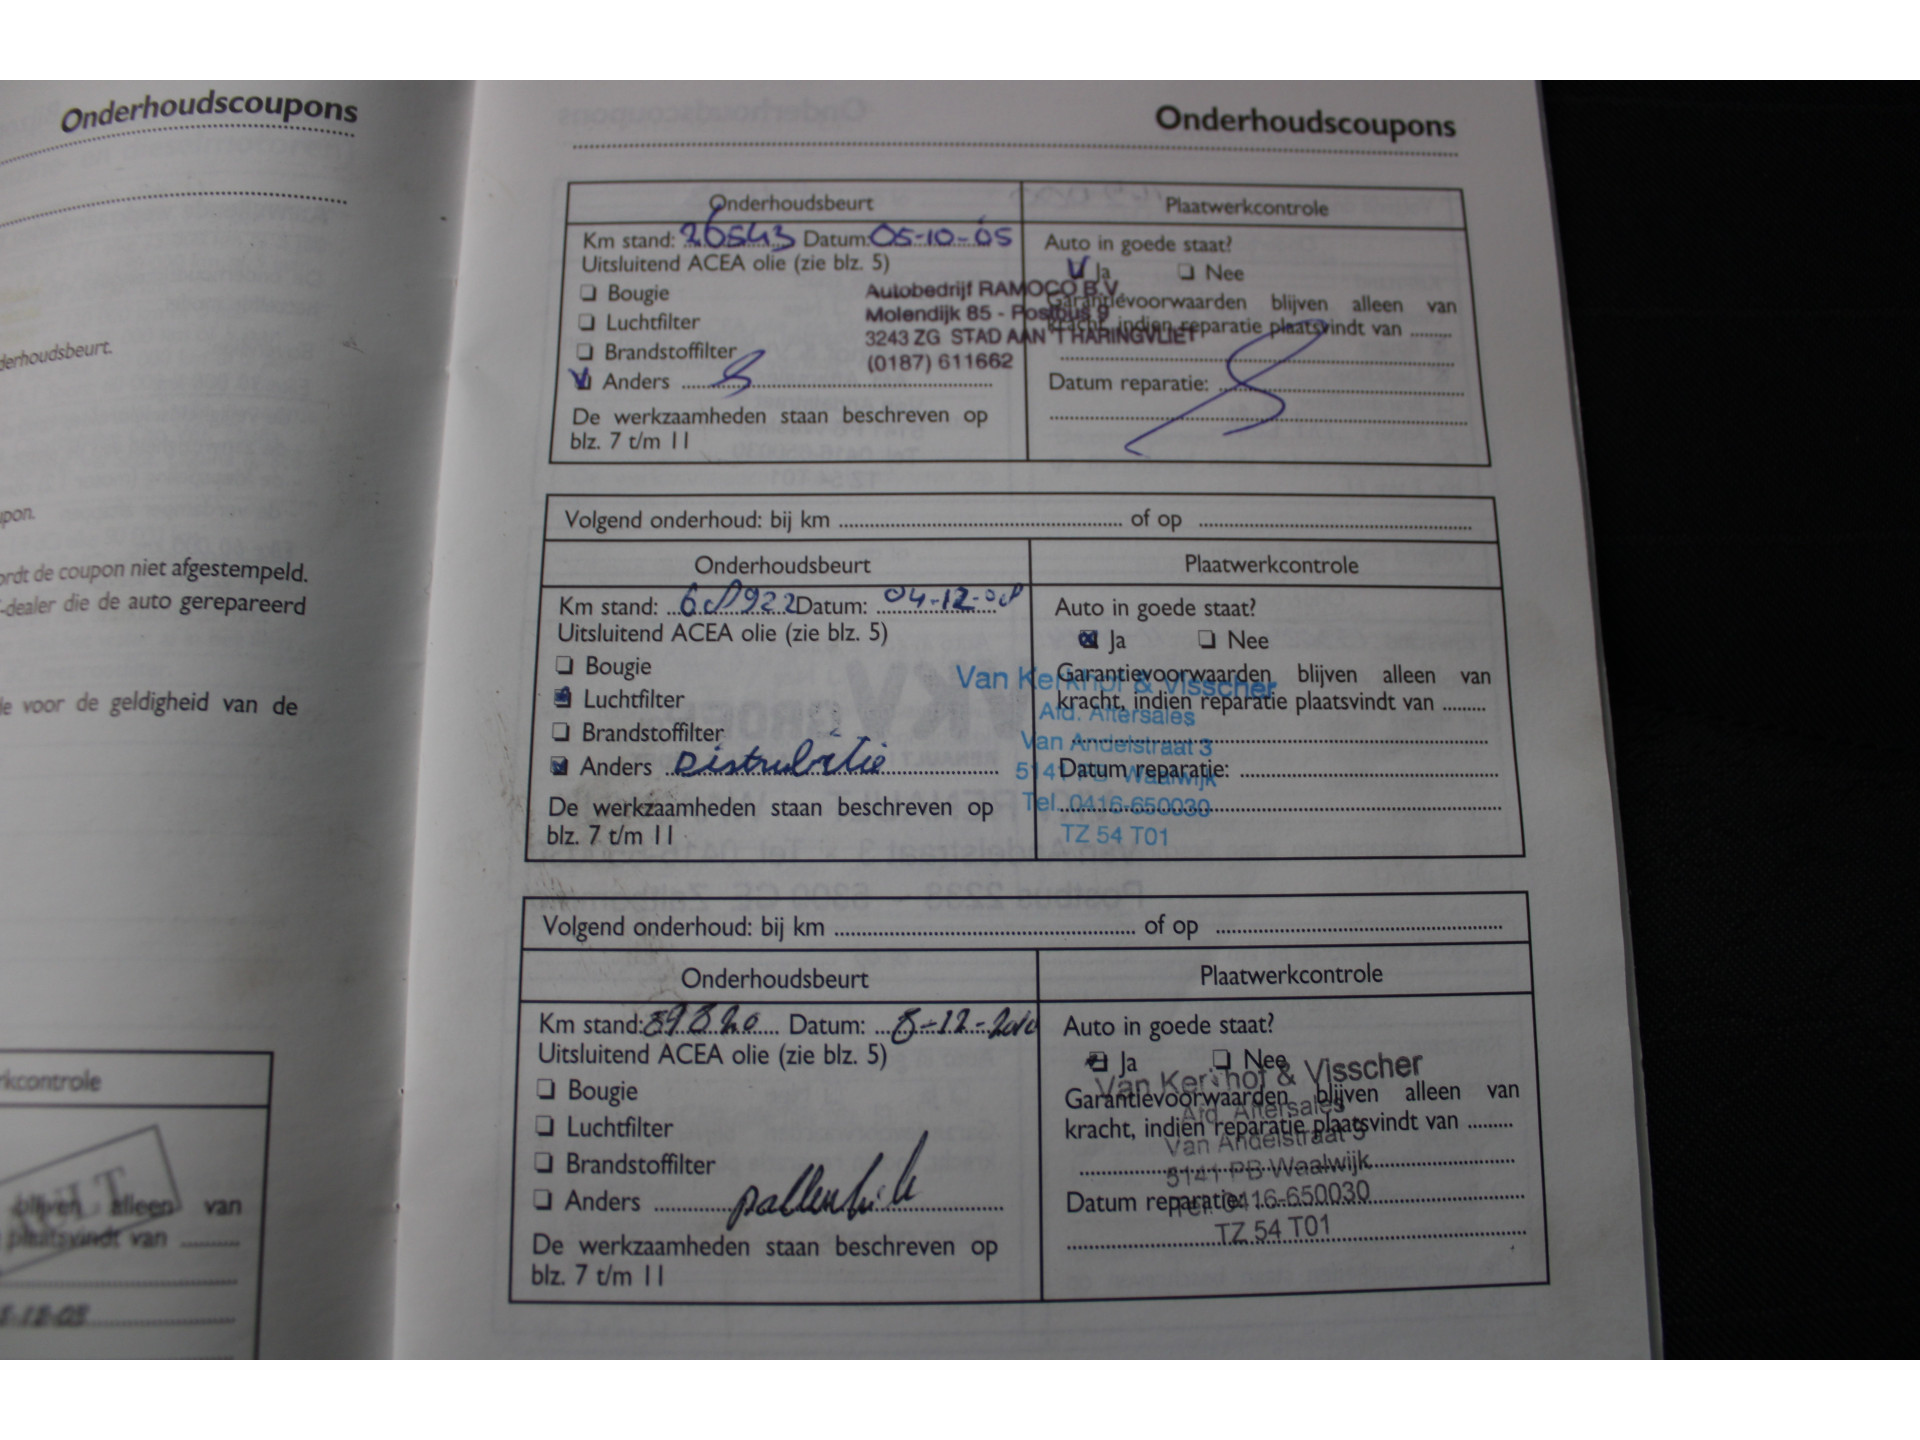 Onderhoudscoupons
derhoudsbeurt.
pon.
ordt de coupon niet afgestempeld.
-dealer die de auto gerepareerd
le voor de geldigheid van de
rkcontrole
blijven alleen van
plaatsvindt van
Onderhoudscoupons
Onderhoudsbeurt
Plaatwerkcontrole
Km stand: 26543 Datum: 05-10-05
Auto in goede staat?
Uitsluitend ACEA olie (zie blz. 5)
Ja Nee
Bougie
Autobedrijf RAMOCO B.V.
Garantievoorwaarden blijven alleen van
Luchtfilter
Molendijk 85 - Postbus 9
kracht, indien reparatie plaatsvindt van ........
3243 ZG STAD AAN 'T HARINGVLIET
Brandstoffilter
(0187) 611662
Anders
Datum reparatie:
De werkzaamheden staan beschreven op
blz. 7 t/m 11
Volgend onderhoud: bij km of op
Onderhoudsbeurt
Plaatwerkcontrole
Km stand: 68922 Datum: 04-12-08
Auto in goede staat?
Uitsluitend ACEA olie (zie blz. 5)
Ja Nee
Bougie
Garantievoorwaarden blijven alleen van
Van Kerkhof & Visscher
Luchtfilter
kracht, indien reparatie plaatsvindt van ........
Afd. Aftersales
Brandstoffilter
Van Andelstraat 3
Anders Distributie
Datum reparatie:
5141 PB Waalwijk
De werkzaamheden staan beschreven op
Tel. 0416-650030
blz. 7 t/m 11
TZ 54 T01
Volgend onderhoud: bij km of op
Onderhoudsbeurt
Plaatwerkcontrole
Km stand: 89820 Datum: 8-12-2010
Auto in goede staat?
Uitsluitend ACEA olie (zie blz. 5)
Ja Nee
Van Kerkhof & Visscher
Bougie
Garantievoorwaarden blijven alleen van
Afd. Aftersales
Luchtfilter
kracht, indien reparatie plaatsvindt van ........
Van Andelstraat 3
Brandstoffilter
5141 PB Waalwijk
Anders
Datum reparatie:
Tel. 0416-650030
TZ 54 T01
De werkzaamheden staan beschreven op
blz. 7 t/m 11